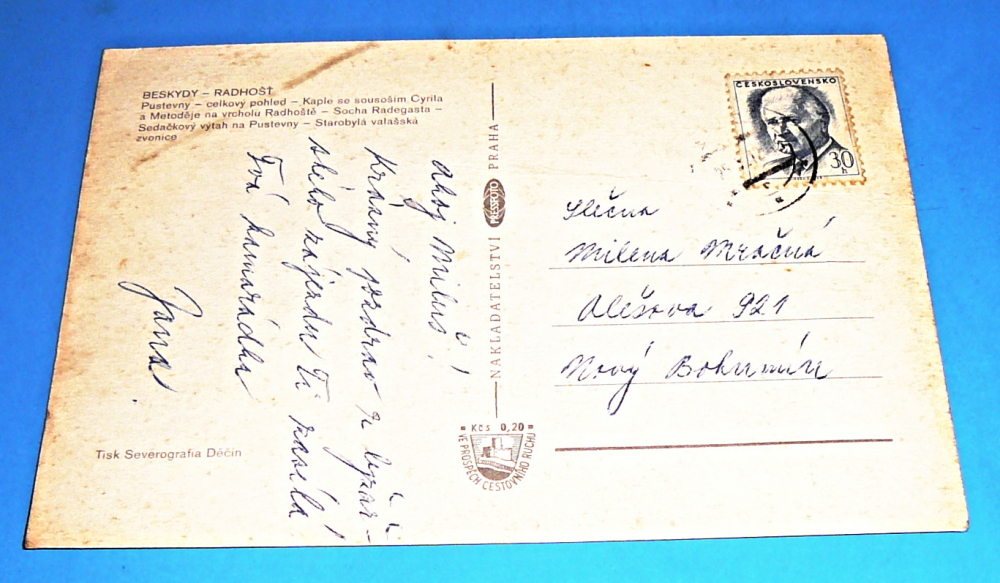 BESKYDY – RADHOŠŤ
Pustevny – celkový pohled – Kaple se sousoším Cyrila
a Metoděje na vrcholu Radhoště – Socha Radegasta –
Sedačkový výtah na Pustevny – Starobylá valašská
zvonice
Ahoj Miluš!
Krásný pozdrav z lyžař-
ského zájezdu Ti zasílá
Tvá kamarádka
Jana.
Tisk Severografia Děčín
NAKLADATELSTVÍ PRESSFOTO PRAHA
Kčs 0,20
VE PROSPĚCH CESTOVNÍHO RUCHU
ČESKOSLOVENSKO
30
h
Slečna
Milena Mračná
Alešova 921
Nový Bohumín